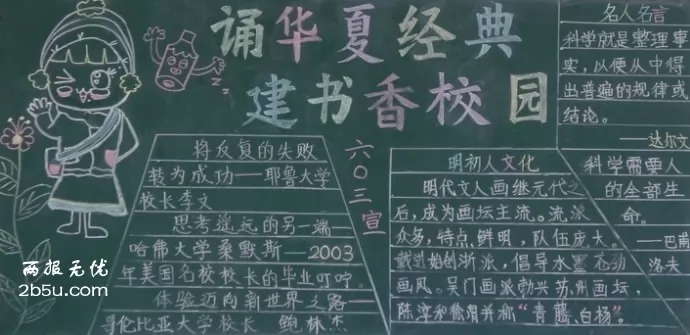 诵华夏经典
建书香校园
名人名言
科学就是整理事
实，以便从中得
出普遍的规律或
结论。
——达尔文
将反复的失败
转为成功——耶鲁大学
校长李文
思考遥远的另一端——
哈佛大学桑默斯——2003
年美国名校校长的毕业叮咛
体验迈向新世界之路——
哥伦比亚大学校长 鲍林杰
六〇三宣
明初人文化
明代文人画继元代之
后，成为画坛主流。流派
众多，特点鲜明，队伍庞大。
戴进始创浙派，倡导水墨
画风。吴门画派勃兴苏州画坛，
陈淳和徐渭并称“青藤、白杨”。
科学需要人
的全部生
命。
——巴甫
洛夫
两报无忧
2b5u.com